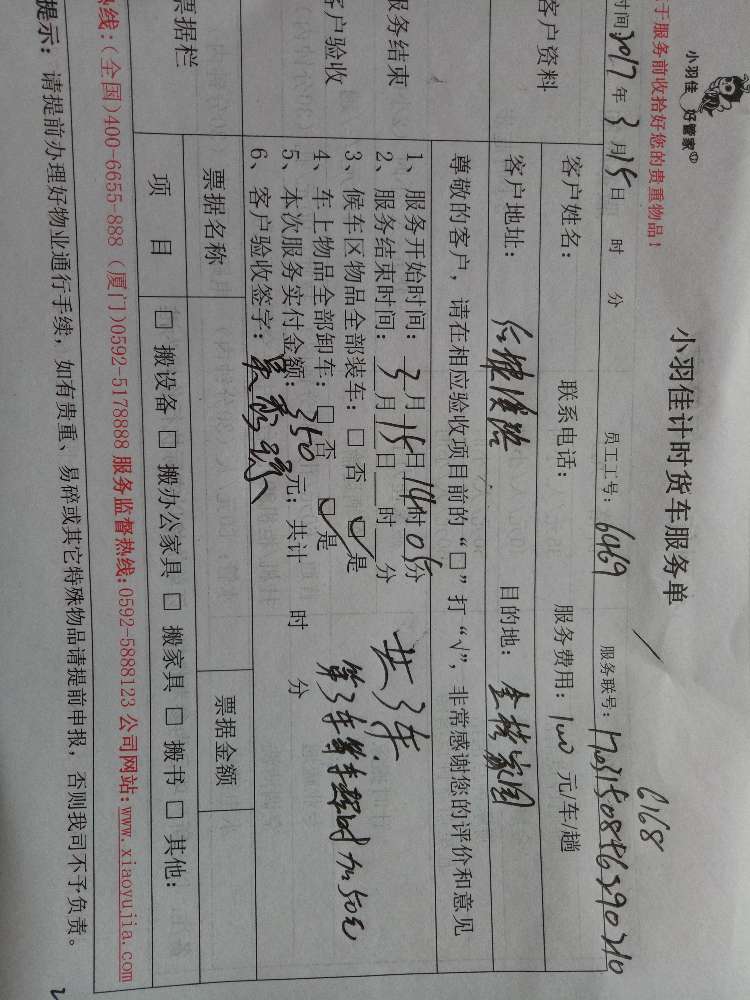 小羽佳 好管家
小羽佳计时货车服务单
6168
于服务前收拾好您的贵重物品!
时间2017年3月15日 时 分 员工工号: 6469 服务联号:
客户资料
客户姓名: 联系电话: 服务费用: 100 元/车/趟
客户地址: 目的地: 金桥家园
尊敬的客户, 请在相应验收项目前的“□”打“√”, 非常感谢您的评价和意见
服务结束
客户验收
1、服务开始时间: 3月15日14时05分
2、服务结束时间: 月 日 时 分
3、候车区物品全部装车: □ 否 ☑ 是
4、车上物品全部卸车: □ 否 ☑ 是
5、本次服务实付金额: 350 元; 共计 时 分
6、客户验收签字:
共3车
加50元
票据栏
票据名称 票据金额
项 目 □ 搬设备 □ 搬办公家具 □ 搬家具 □ 搬书 □ 其他:
热线:(全国)400-6655-888 (厦门)0592-5178888 服务监督热线:0592-5888123 公司网站:www.xiaoyujia.com
提示: 请提前办理好物业通行手续, 如有贵重、易碎或其它特殊物品请提前申报, 否则我司不予负责。